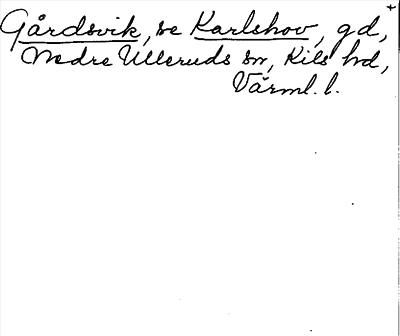 Gårdsvik, se Karlshov, gd,
Nedre Ulleruds sn, Kils hd,
Värml. l.